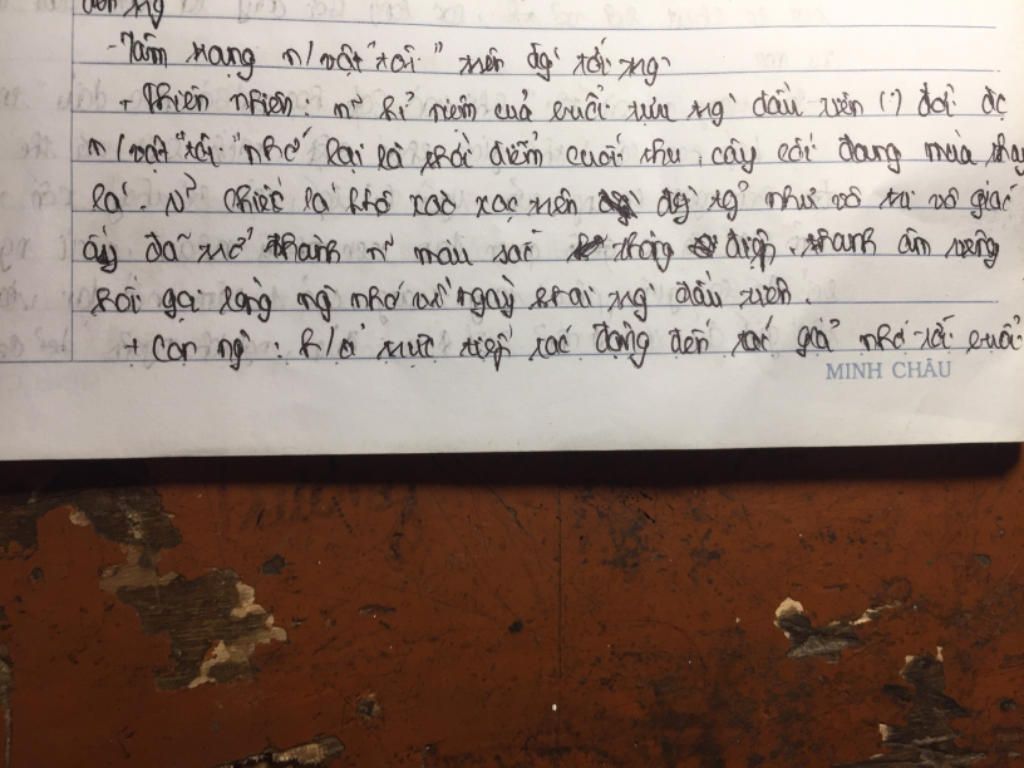 - Tâm trạng n/vật "tôi" trên đg' tới trg'
+ Thiên nhiên: n~ kỉ niệm của buổi tựu trg' đầu tiên (') đời đc
n/vật "tôi" nhớ lại là thời điểm cuối thu, cây cối đang mùa thay
lá. N~ chiếc lá khô xào xạc trên đg' tg? như vô tri vô giác
ấy đã trở thành n~ màu sắc thông điệp, thanh âm
khơi gợi lòng ng' nhớ về ngày khai trg' đầu tiên.
+ Con ng': h/ả trực tiếp tác động đến tác giả nhớ tới buổi
MINH CHÂU